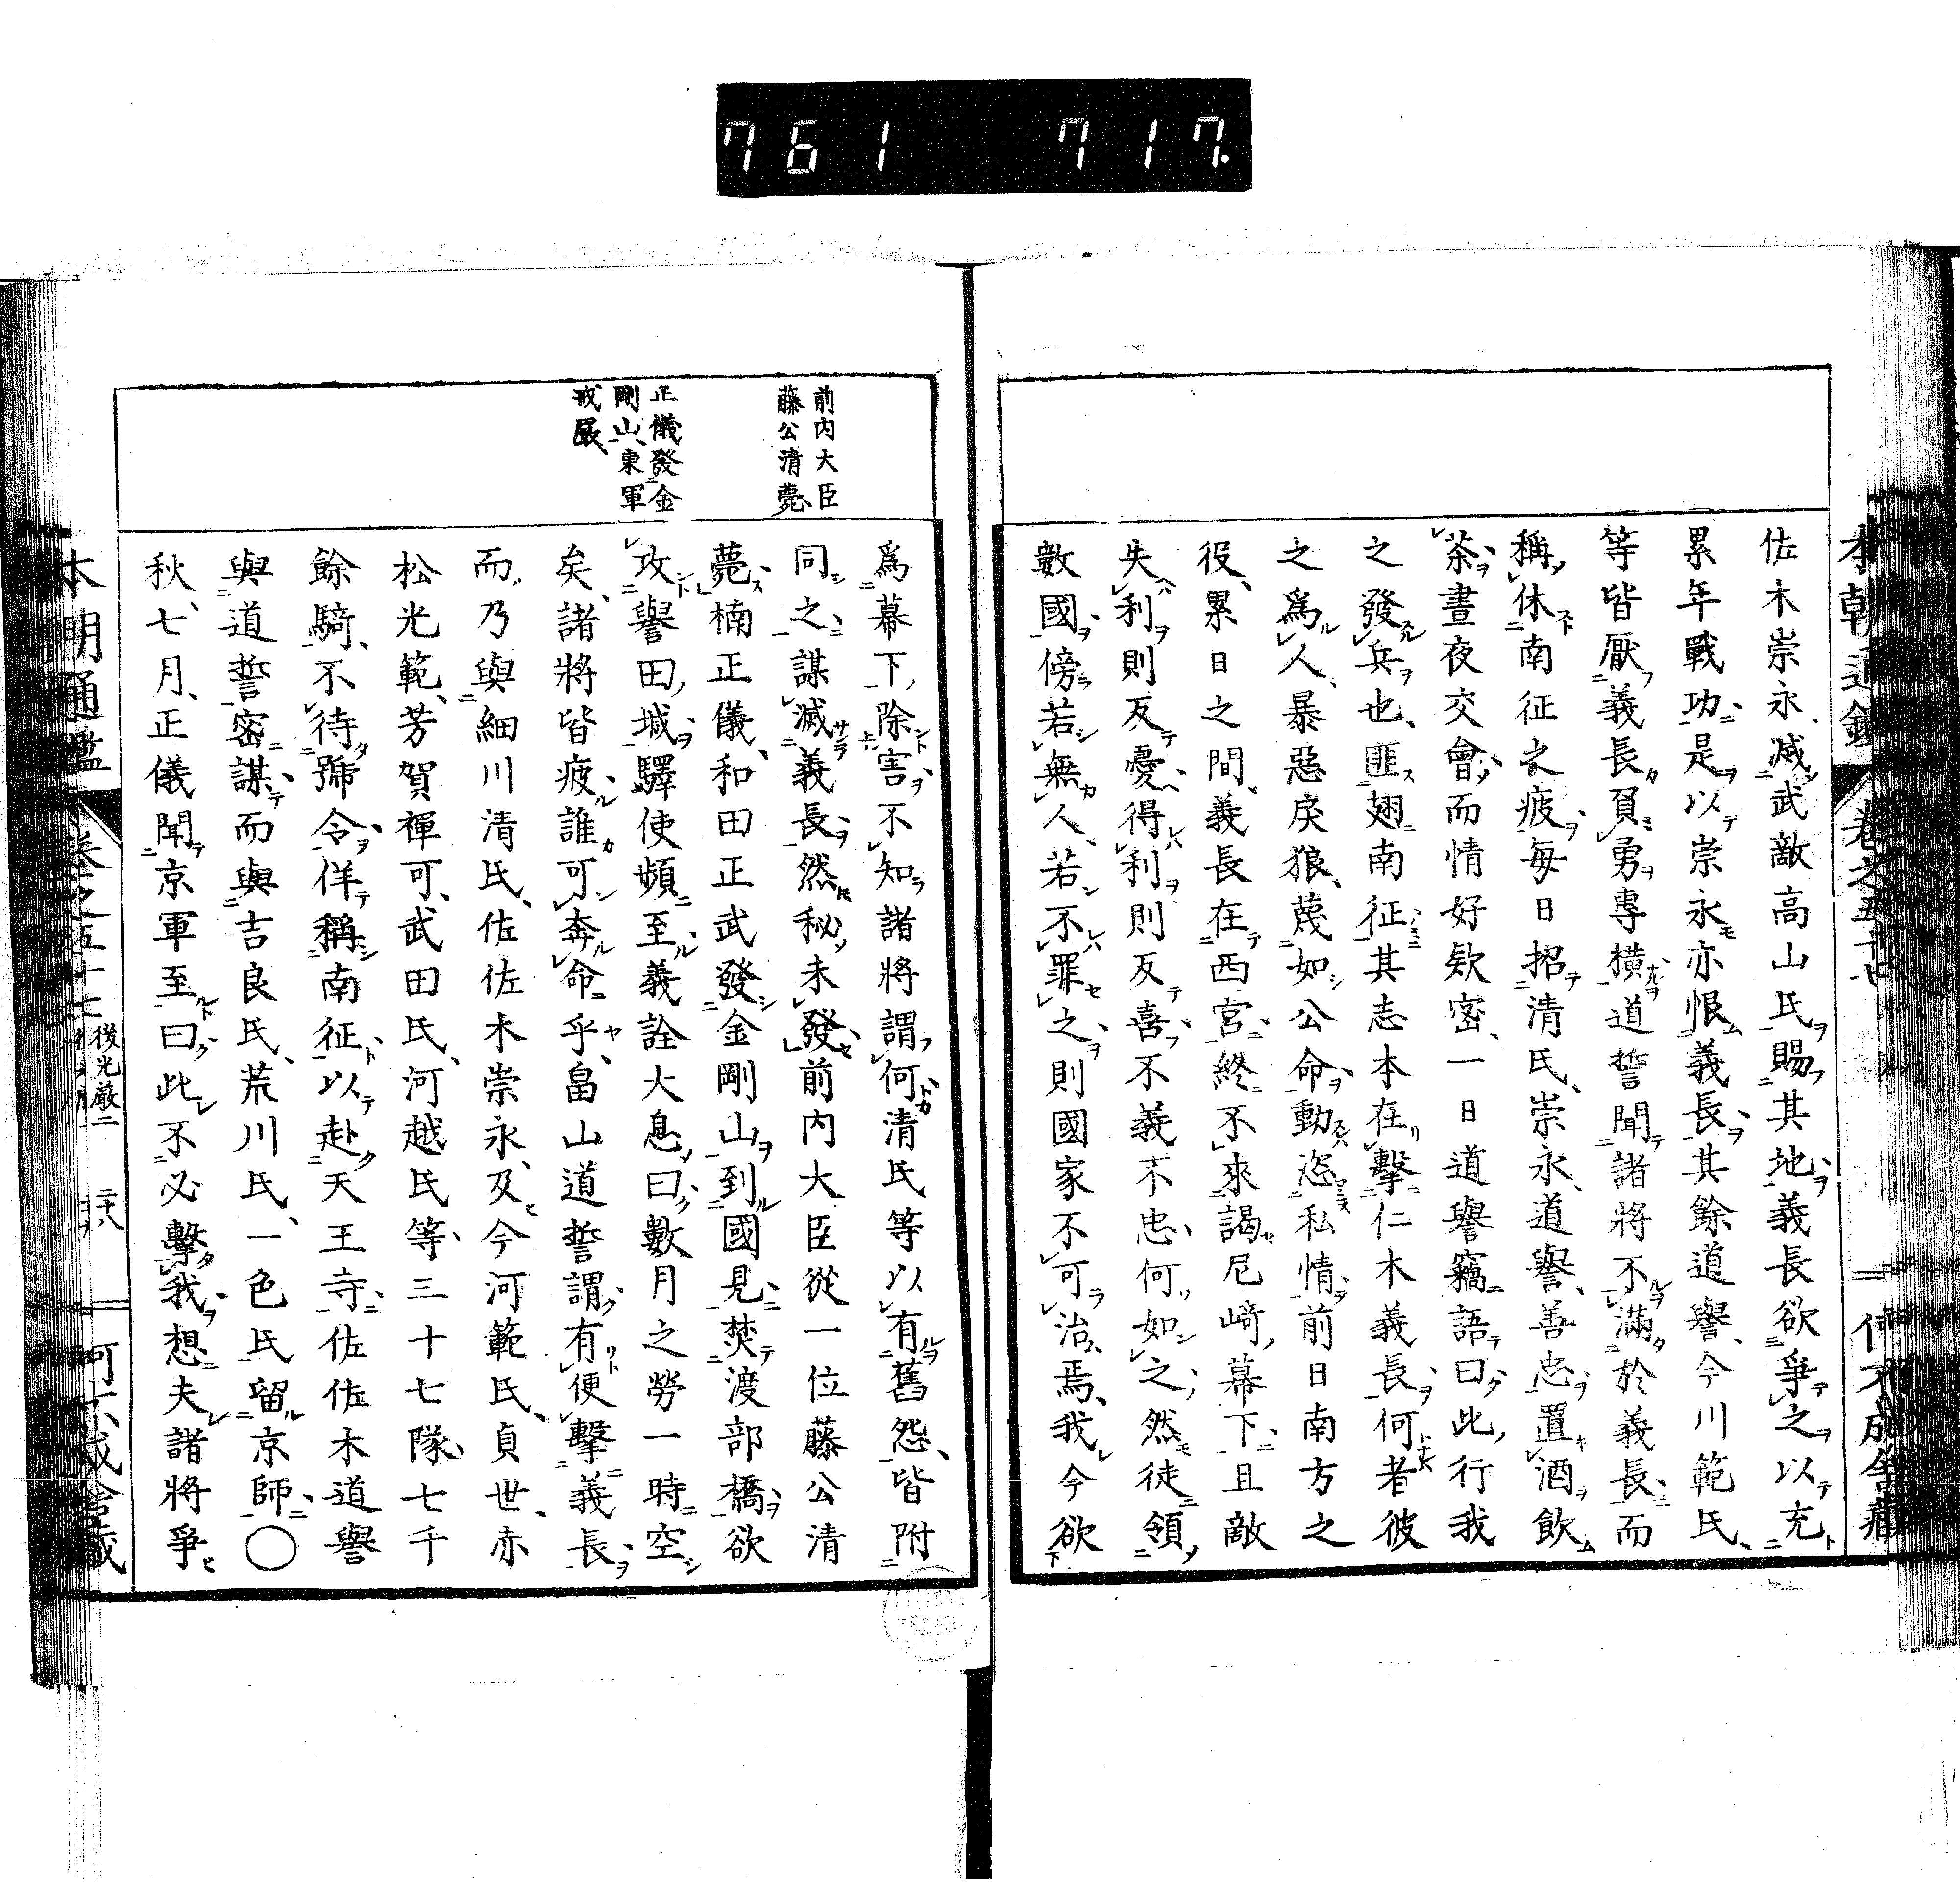 761 717.
佐木崇永減武敵高山氏賜其地義長欲爭之以充
累年戰功是以崇永亦恨義長其餘道譽今川範氏
等皆厭義長負勇專橫道誓聞諸將不滿於義長而
稱休南征之疲每日招清氏崇永道譽善忠置酒飲
茶晝夜交會而情好欵密一日道譽竊語曰此行我
之發兵也匪翅南征其志本在擊仁木義長何者彼
之爲人暴惡戾狼蔑如公命動恣私情前日南方之
役累日之間義長在西宮終不來謁尼﨑幕下且敵
失利則反憂得利則反喜不義不忠何如之然徒領
數國傍若無人若不罪之則國家不可治焉我今欲
前內大臣
藤公清薨
正儀發金
剛山東軍
戒嚴
爲幕下除害不知諸將謂何清氏等以有舊怨皆附
同之謀滅義長然秘未發前內大臣從一位藤公清
薨楠正儀和田正武發金剛山到國見焚渡部橋欲
攻譽田城驛使頻至義詮大息曰數月之勞一時空
矣諸將皆疲誰可奔命乎畠山道誓謂有便擊義長
而乃與細川清氏佐佐木崇永及今河範氏貞世赤
松光範芳賀禪可武田氏河越氏等三十七隊七千
餘騎不待號令佯稱南征以赴天王寺佐佐木道譽
與道誓密謀而與吉良氏荒川氏一色氏留京師○
秋七月正儀聞京軍至曰此不必擊我想夫諸將爭
本朝通鑑
後光嚴二
二十八